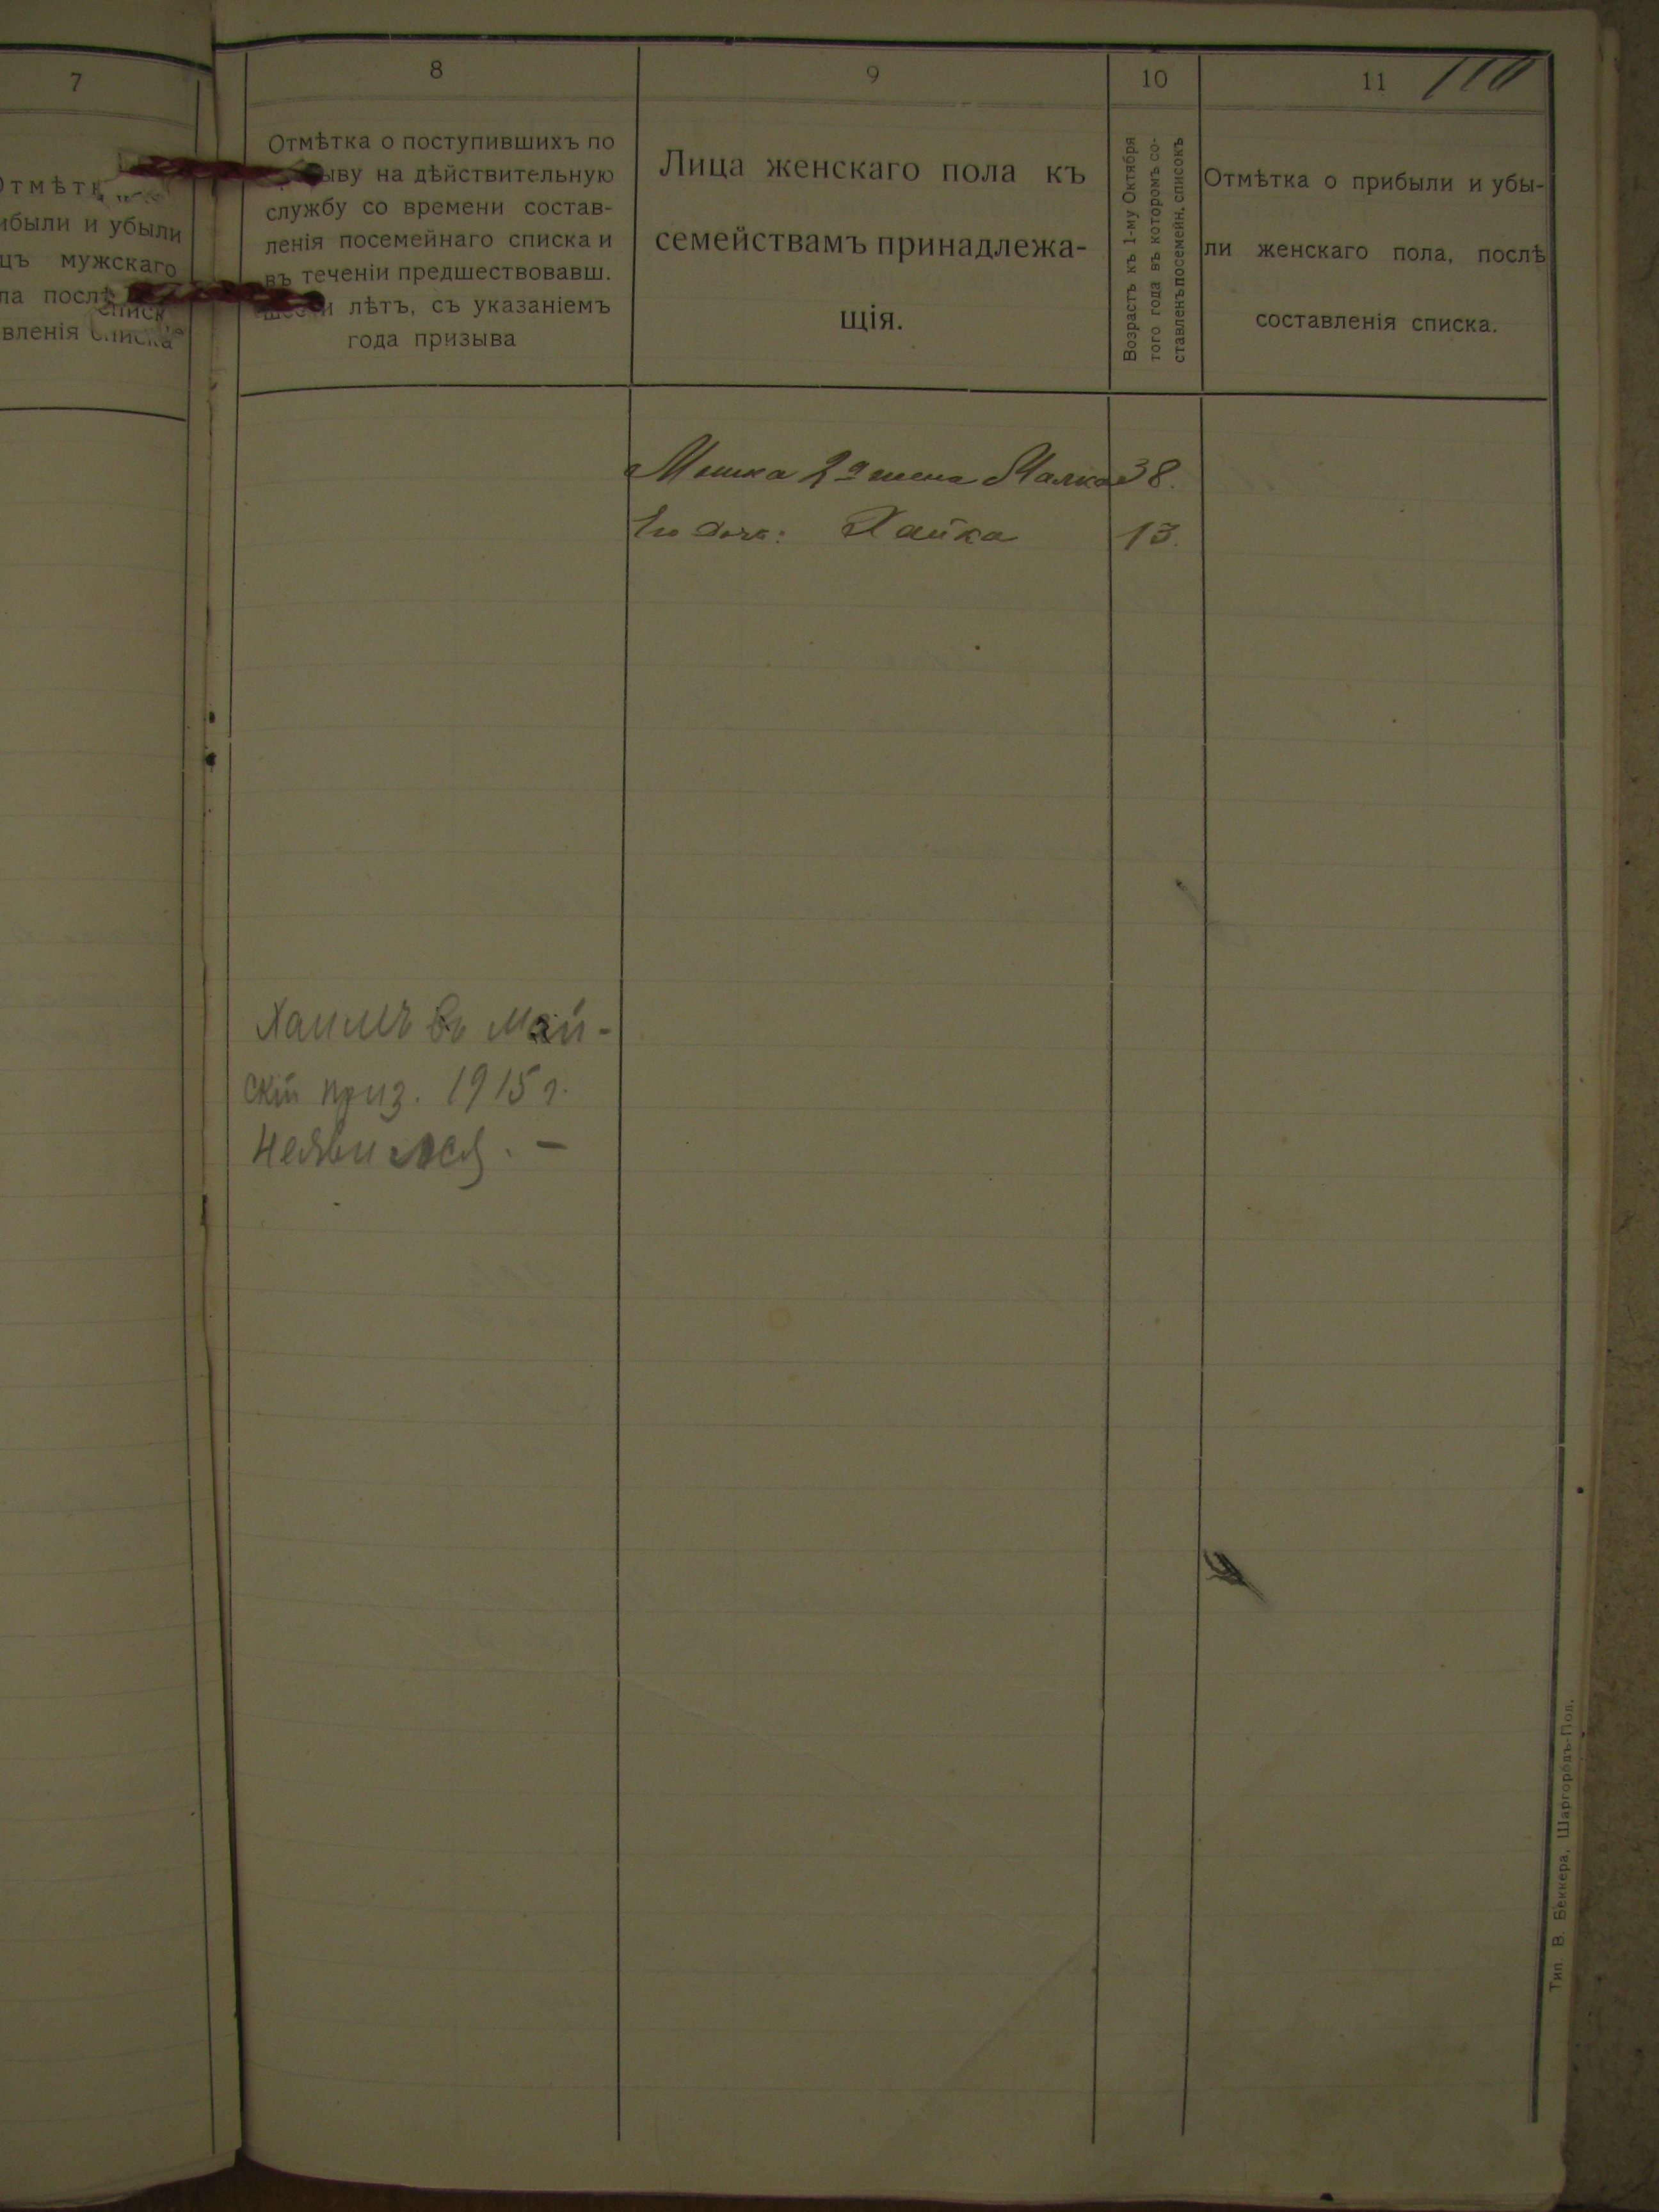 7
Отмѣтк
ибыли и убыли
цъ мужскаго
ла послѣ
вленія списка
8
Отмѣтка о поступившихъ по
ыву на дѣйствительную
службу со времени состав-
ленія посемейнаго списка и
въ теченіи предшествовавш.
шести лѣтъ, съ указаніемъ
года призыва
9
Лица женскаго пола къ
семействамъ принадлежа-
щія.
10
Возрастъ къ 1-му Октября
того года въ которомъ со-
ставленъ посемейн. списокъ
11
110
Отмѣтка о прибыли и убы-
ли женскаго пола, послѣ
составленія списка.
Мошка 2я жена Малка 38.
Его дочь: Хайка 13.
Хаимъ въ Май-
скій приз. 1915 г.
неявился. –
Тип. В. Беккера, Шаргородъ-Под.